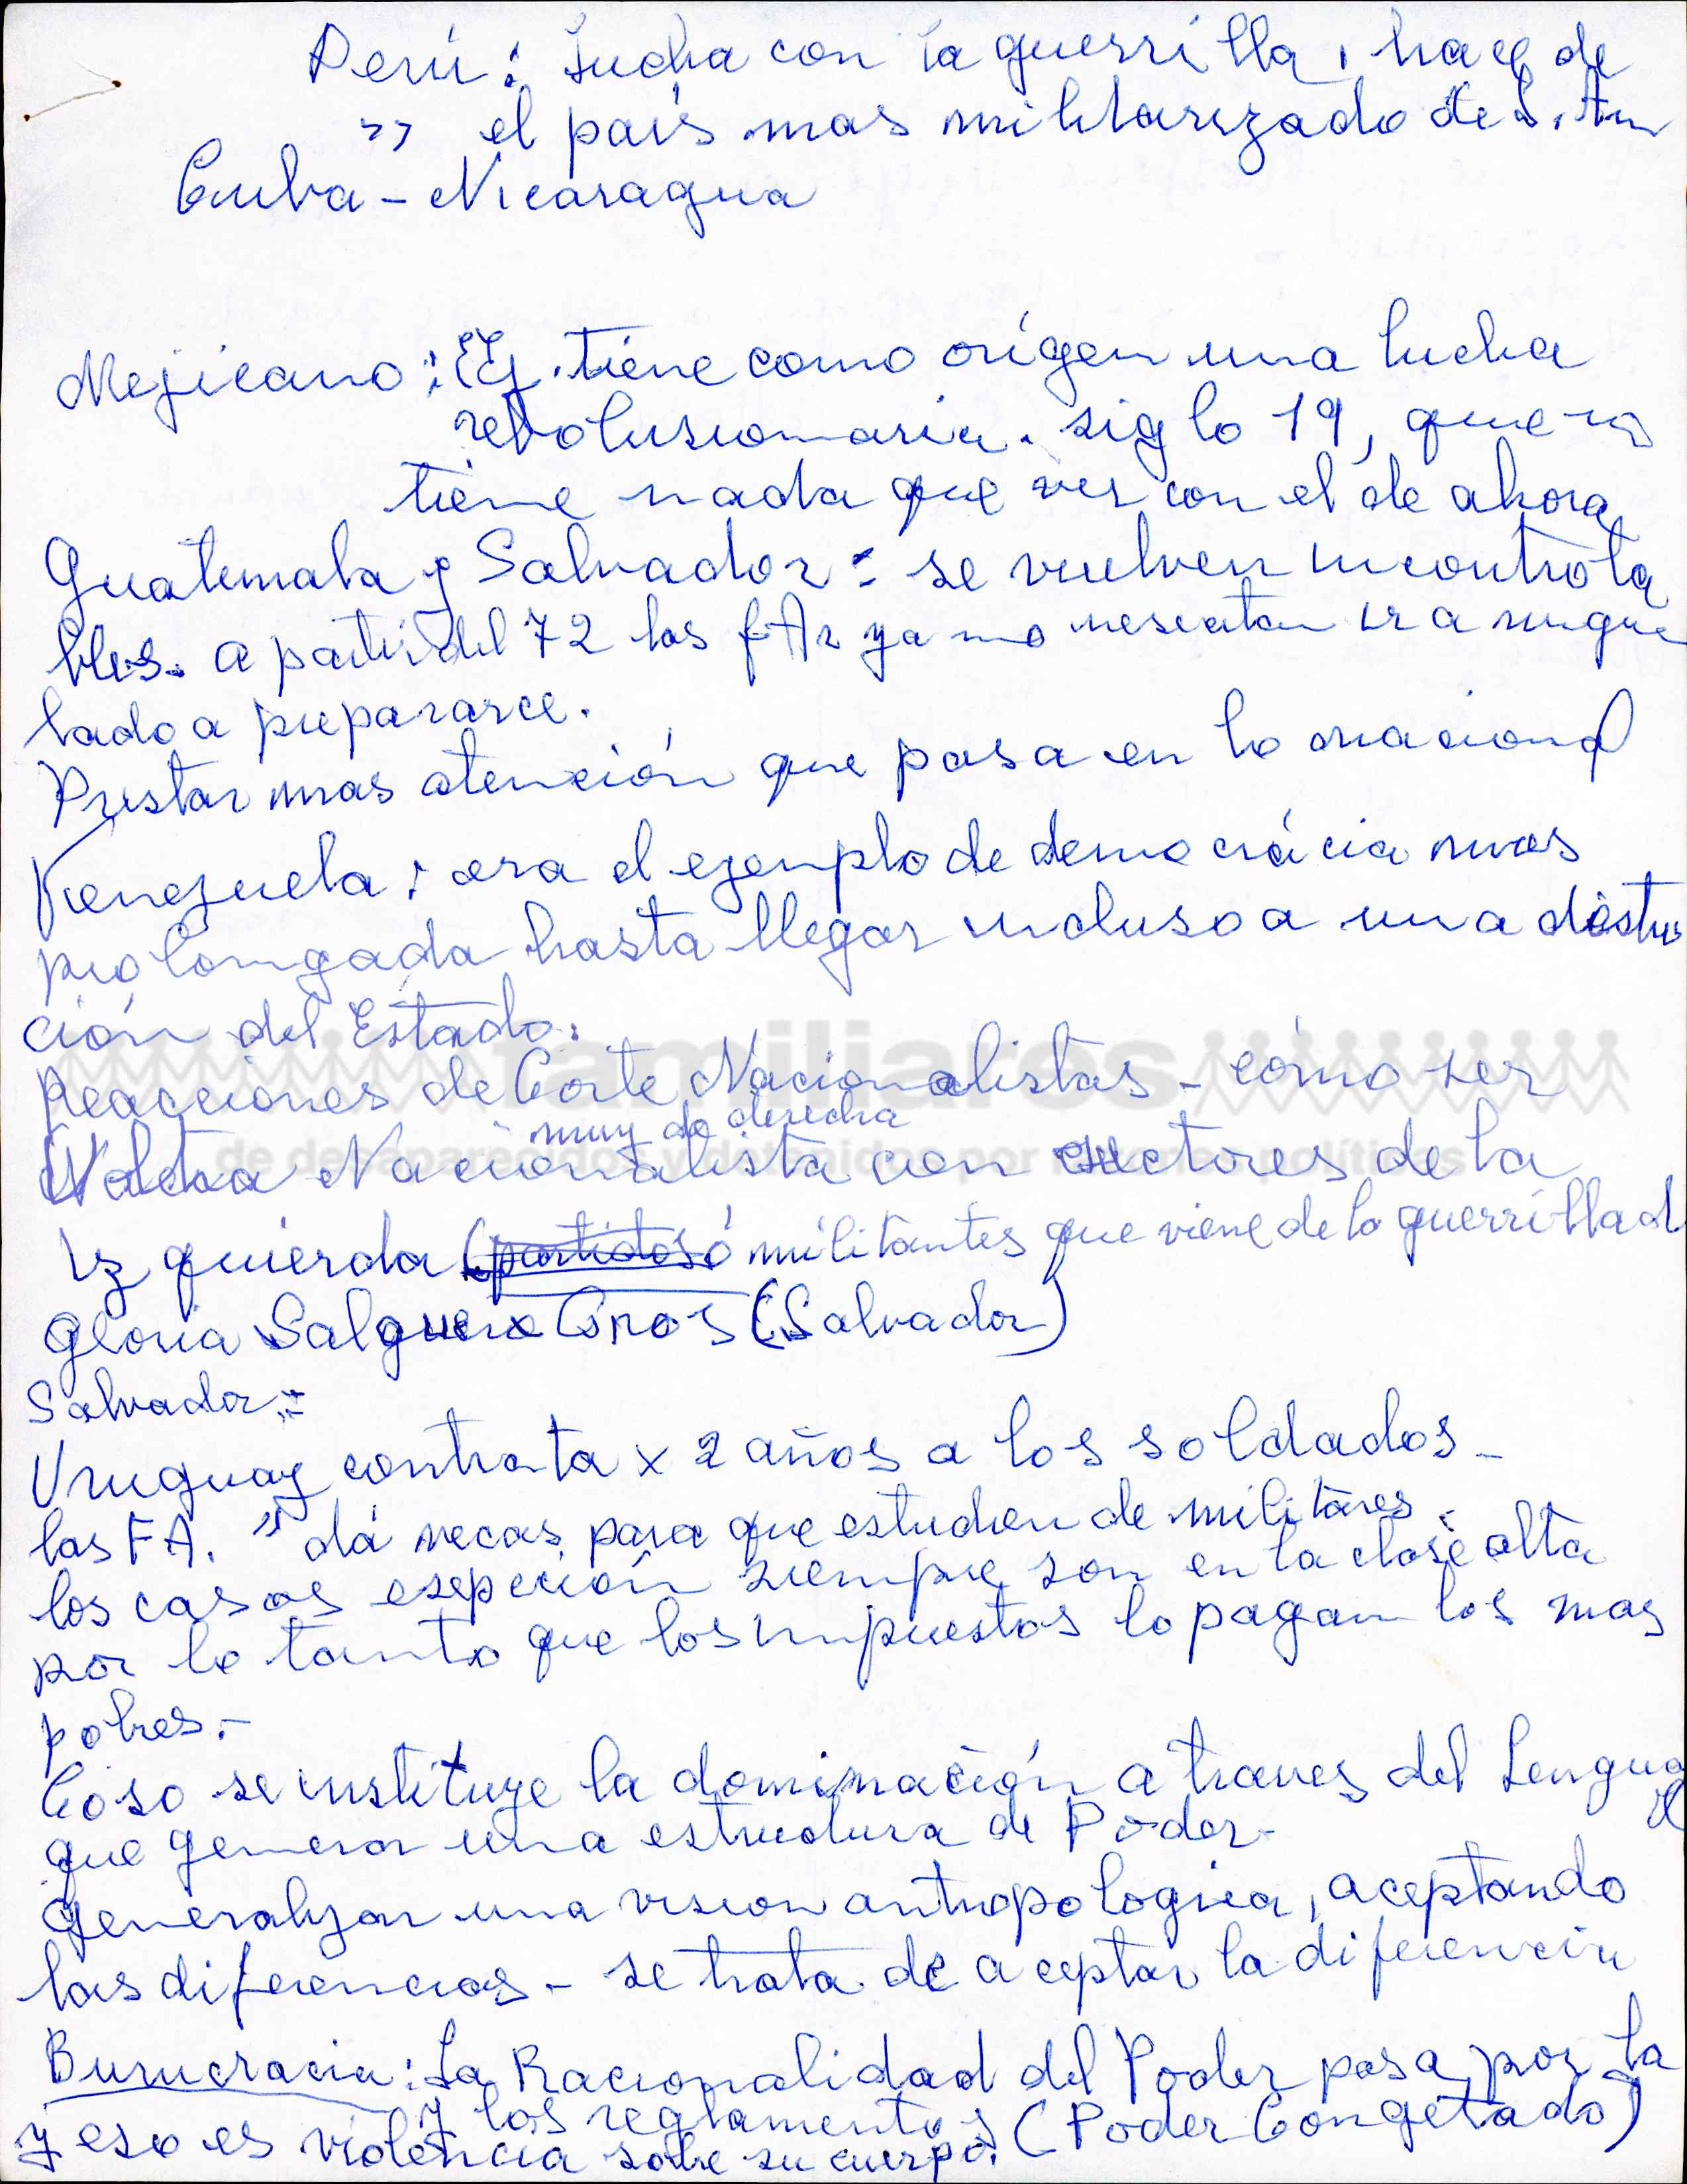 Perú: Lucha con la guerrilla, hace de
" el país mas militarizado de L. Am
Cuba - Nicaragua
Mejicano: Ej. tiene como orígen una lucha
revolusionaria. siglo 19, que no
tiene nada que ver con el de ahora
Guatemala y Salvador: se vuelven incontrola
bles. a partir del 72 las fAr ya no nesesitan ir a ningun
lado a prepararce.
Prestar mas atención que pasa en lo nacional
Venezuela: era el ejemplo de democrácia mas
prolongada hasta llegar incluso a una déstru
ción del Estado.
familiares
Reacciones de Corte Nacionalistas - cómo ser
muy de derecha
de desaparecidos y detenidos por razones políticas
Nacionalista con sectores de la
Izquierda (partidos ó militantes que viene de la guerrilla d
Gloria Salguero Gros (Salvador)
Salvador:
Uruguay contrata x 2 años a los soldados -
las FA. " dá vecas para que estudien de militares.
los casos esepción siempre son en la clase alta
por lo tanto que los impuestos lo pagan los mas
pobres.-
Coso se instituye la dominación a traves del Lengua
je
que generan una estructura de Poder-
Generalizan una vision antropologica, aceptando
las diferencias - se trata de aceptar la diferencia
Burucracia: La Racionalidad del Poder pasa por la
y los reglamentos (Poder Congelado)
y eso es violencia sobre su cuerpo.